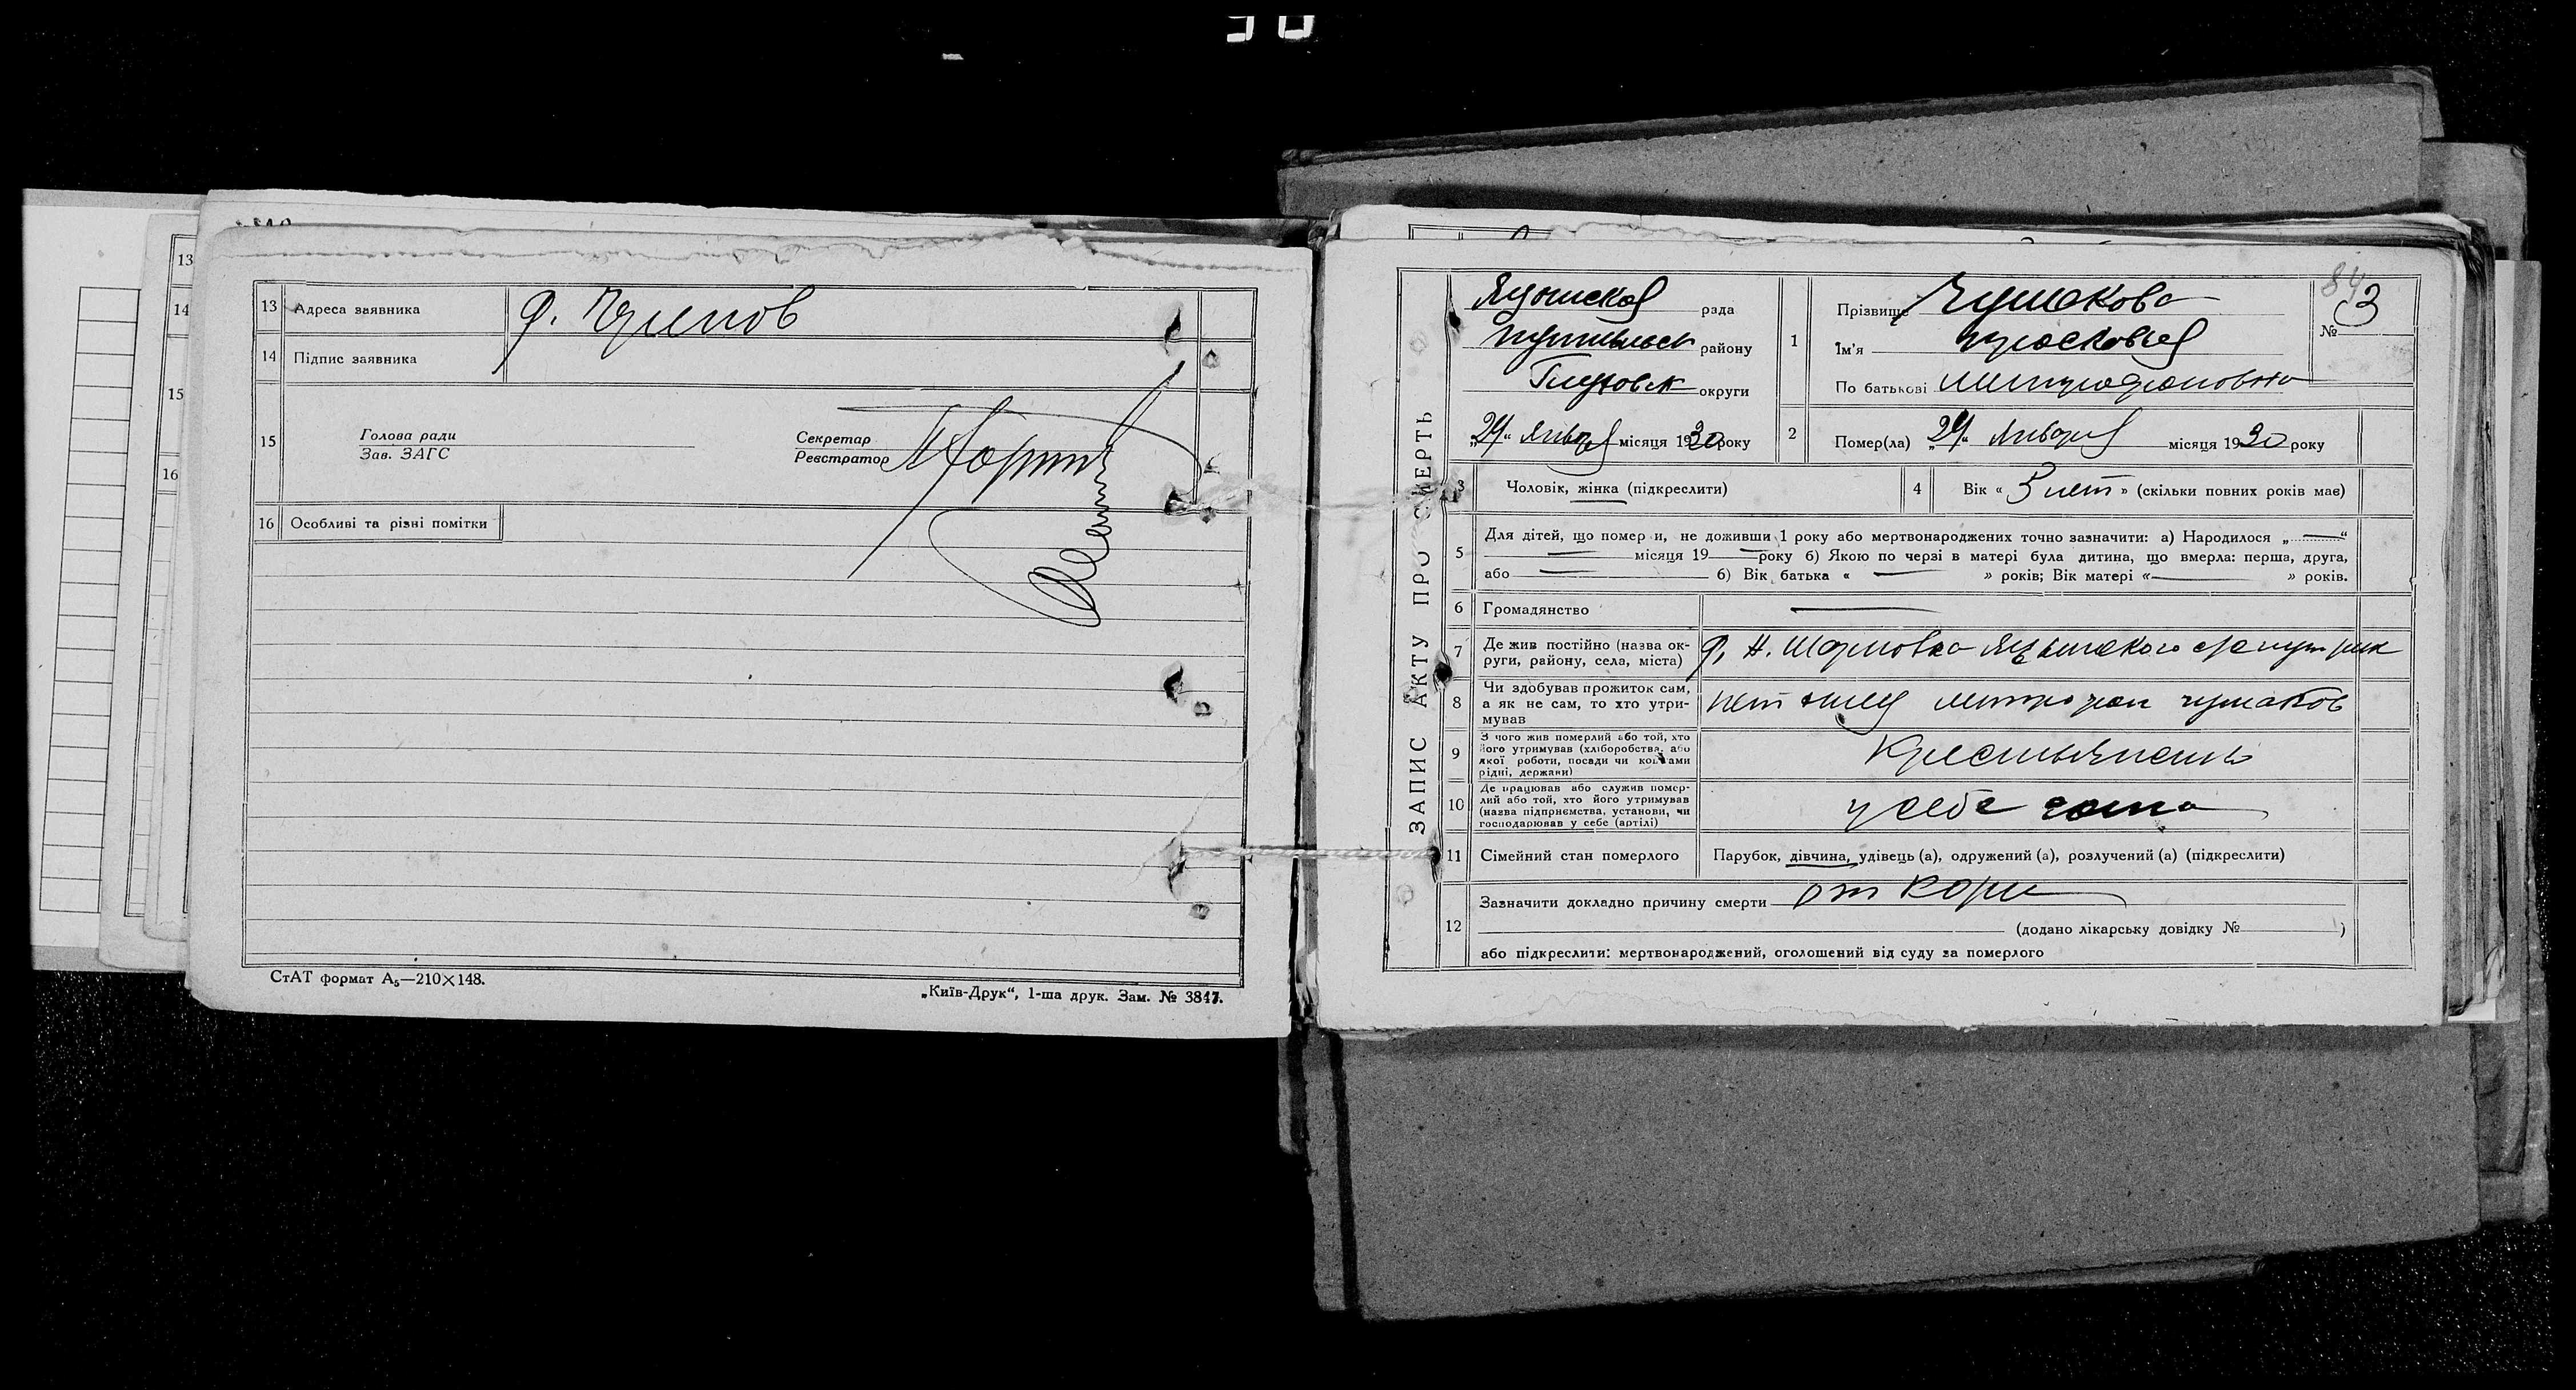 13 Адреса заявника
14 Підпис заявника
15 Голова ради
Зав. ЗАГС
Секретар
Реєстратор
16 Особливі та різні помітки
СтАТ формат А₅—210×148.
„Київ-Друк“, 1-ша друк. Зам. № 3847.
13
14
15
16
ЗАПИС АКТУ ПРО СМЕРТЬ
84
№ 3
рада
району
Глуховск округи
„29“ Января місяця 1930 року
1 Прізвище Чумакова
Ім'я Прасковья
По батькові Митрофановна
2 Помер(ла) „29“ Января місяця 1930 року
3 Чоловік, жінка (підкреслити)
4 Вік « 5 лет » (скільки повних років має)
5 Для дітей, що померли, не доживши 1 року або мертвонароджених точно зазначити: а) Народилося „ — “
— місяця 19 — року б) Якою по черзі в матері була дитина, що вмерла: перша, друга,
або — б) Вік батька « — » років; Вік матері « — » років.
6 Громадянство —
7 Де жив постійно (назва ок-
руги, району, села, міста)
8 Чи здобував прожиток сам,
а як не сам, то хто утри-
мував
нет отец Митрофан Чумаков
9 З чого жив померлий або той, хто
його утримував (хліборобства, або
якої роботи, посади чи коштами
рідні, держави)
10 Де працював або служив помер-
лий або той, хто його утримував
(назва підприємства, установи, чи
господарював у себе (артілі)
у себе
11 Сімейний стан померлого
Парубок, дівчина, удівець (а), одружений (а), розлучений (а) (підкреслити)
12 Зазначити докладно причину смерти от кори
(додано лікарську довідку № )
або підкреслити: мертвонароджений, оголошений від суду за померлого